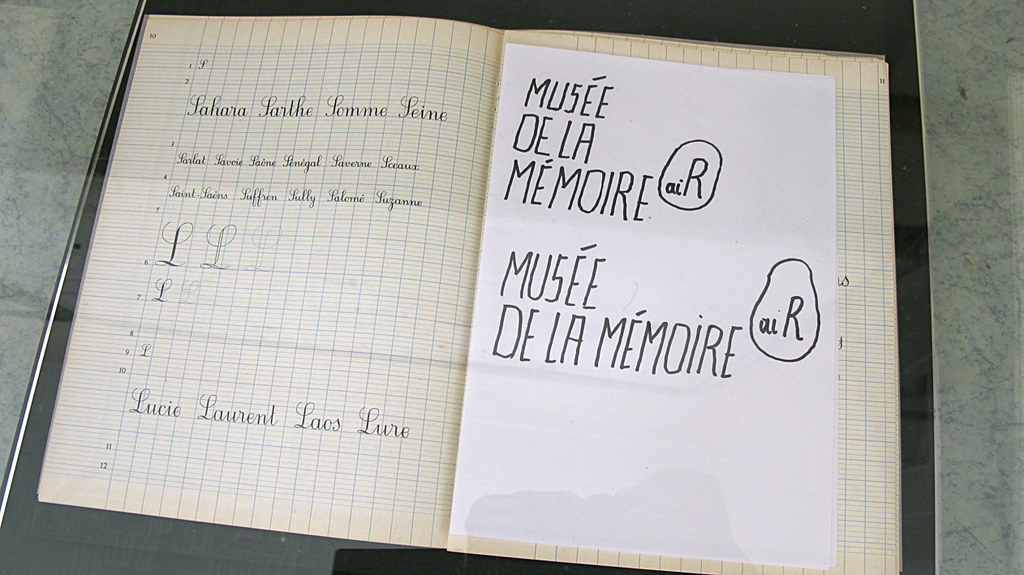 10
1 S
2
Sahara Sarthe Somme Seine
3
Sarlat Savoie Saône Sénégal Saverne Sceaux
4
Saint-Saëns Suffren Sully Salomé Suzanne
5
L L L
6
7 L L
8
9 L
10
Lucie Laurent Laos Lure
11
12
11
MUSÉE
DE LA
MÉMOIRE
aiR
MUSÉE
DE LA MÉMOIRE
aiR